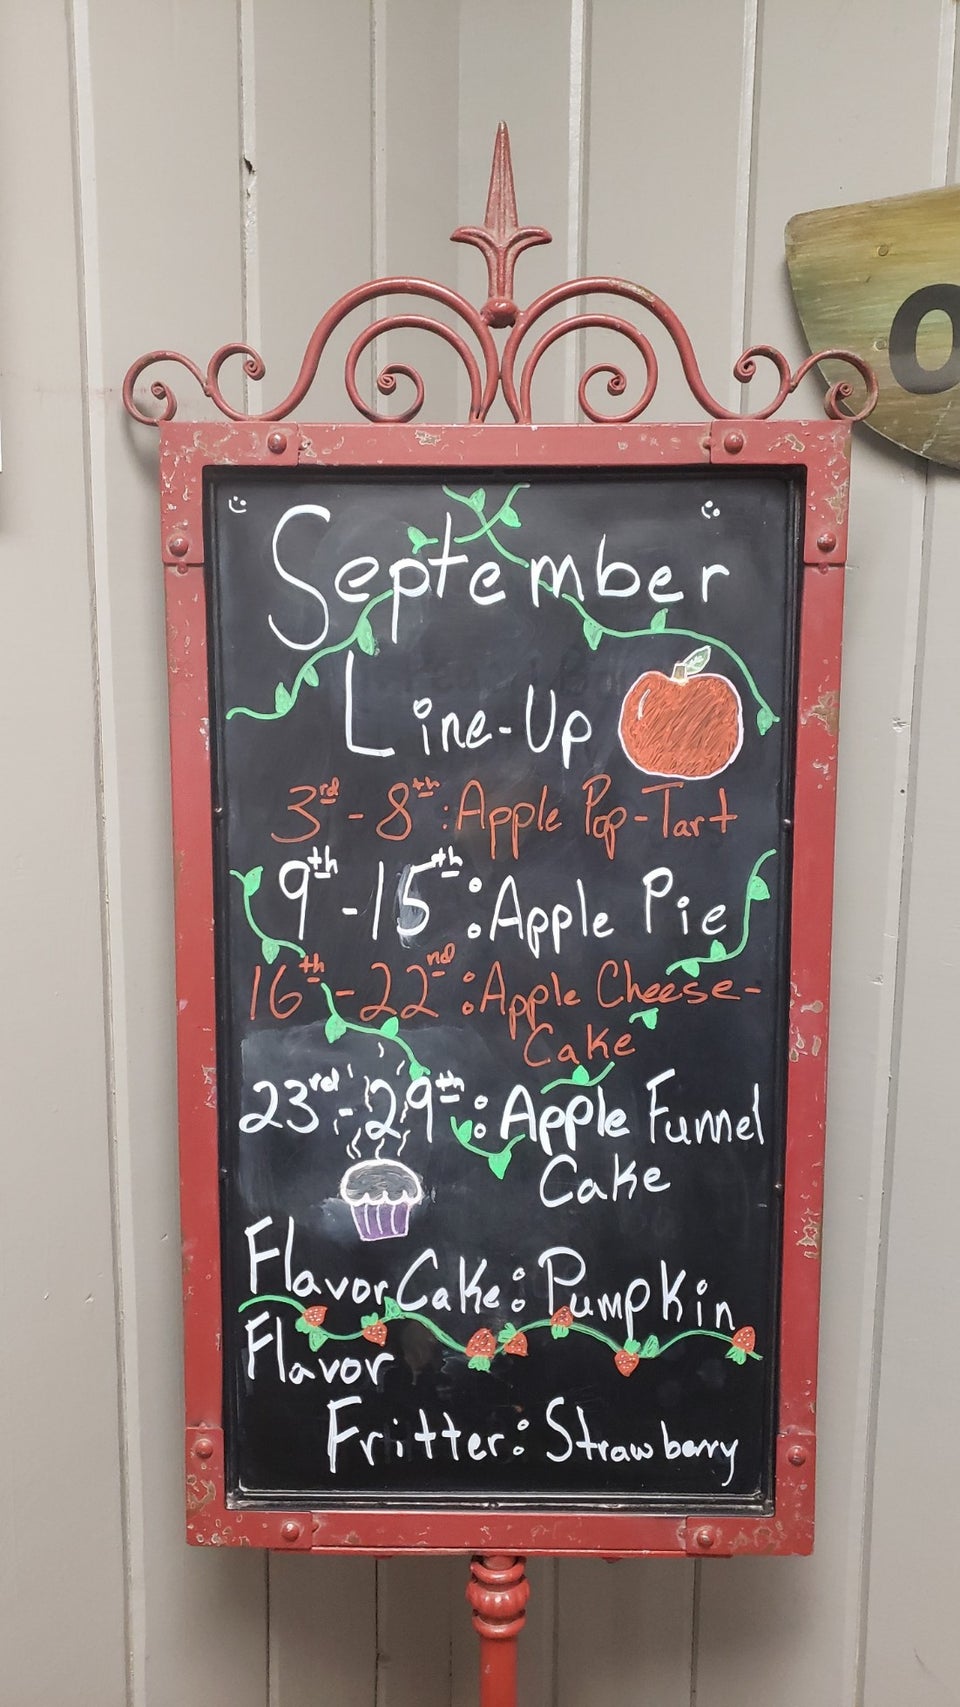 September
Line-Up
3rd - 8th: Apple Pop-Tart
9th - 15th: Apple Pie
16th - 22nd: Apple Cheese-
Cake
23rd - 29th: Apple Funnel
Cake
Flavor Cake: Pumpkin
Flavor
Fritter: Strawberry
O